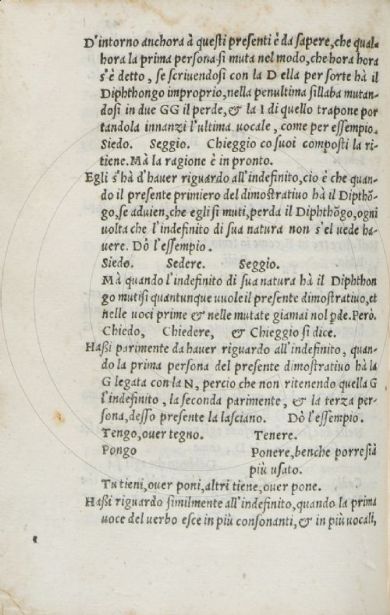 D'intorno anchora à questi presenti è da sapere, che qual
hora la prima persona si muta nel modo, che hora hora
s'è detto, se scrivendosi con la D ella per sorte hà il
Diphthongo improprio, nella penultima sillaba mutan-
dosi in due GG il perde, & la I di quello trapone por
tandola innanzi l'ultima vocale, come per essempio.
Siedo. Seggio. Chieggio co suoi composti la ri-
tiene. Mà la ragione è in pronto.
Egli s'hà d'haver riguardo all'indefinito, ciò è che quan-
do il presente primiero del dimostrativo hà il Dipthõ-
go, se advien, che egli si muti, perda il Diphthõgo, ogni
volta che l'indefinito di sua natura non s'el vede ha-
vere. Dò l'essempio.
Siedo. Sedere. Seggio.
Mà quando l'indefinito di sua natura hà il Diphthon
go mutisi quantunque vuole il presente dimostrativo, et
nelle voci prime & nelle mutate giamai nol pde. Però.
Chiedo, Chiedere, & Chieggio si dice.
Haßi parimente da haver riguardo all'indefinito, quan-
do la prima persona del presente dimostrativo hà la
G legata con la N, percio che non ritenendo quella G
l'indefinito, la seconda parimente, & la terza per-
sona, desso presente la lasciano. Dò l'essempio.
Tengo, over tegno. Tenere.
Pongo Ponere, benche porre sià
più usato.
Tu tieni, over poni, altri tiene, over pone.
Haßi riguardo similmente all'indefinito, quando la prima
voce del verbo esce in più consonanti, & in più vocali,